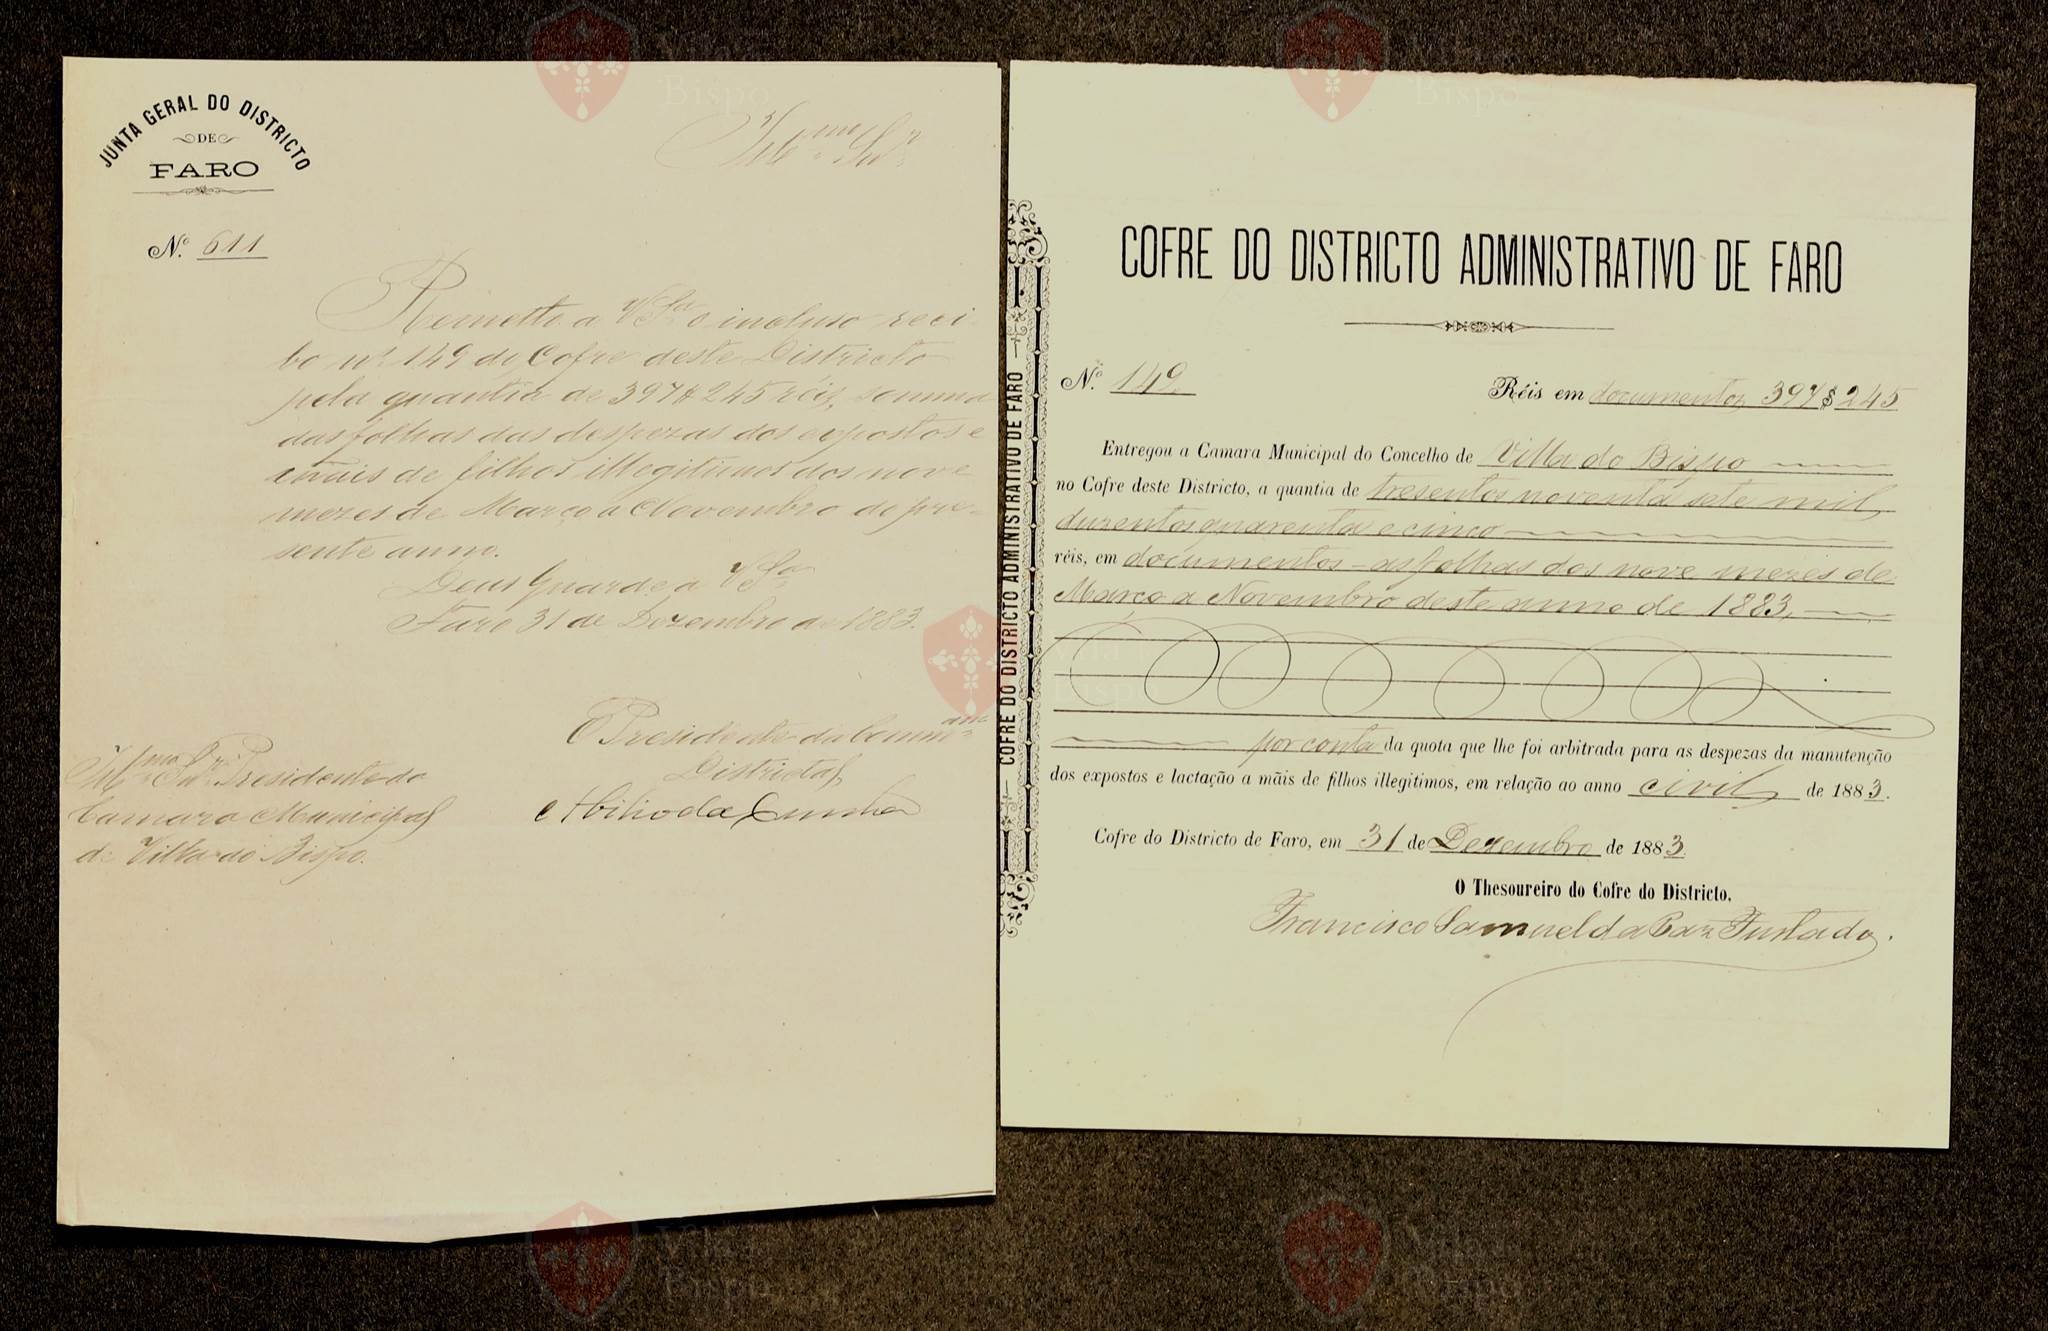 JUNTA GERAL DO DISTRICTO
DE
FARO
N.º 611
Ill.mo Sn.r
Remetto a V S.a o incluso reci-
bo nº 149 do Cofre deste Districto
pela quantia de 397$245 réis, somma
das folhas das despezas dos expostos e
mais de filhos illegitimos dos nove
mezes de Março a Novembro do pre-
sente anno.
Deus Guarde a V S.a
Faro 31 de Dezembro de 1883.
O Presidente da Comm.am
Districtal
Abilio da Cunha
Ill.mo Sn.r Presidente da
Camara Municipal
de Villa do Bispo.
COFRE DO DISTRICTO ADMINISTRATIVO DE FARO
COFRE DO DISTRICTO ADMINISTRATIVO DE FARO
COFRE DO DISTRICTO ADMINISTRATIVO DE FARO
N.º 149
Réis em documentos 397$245
Entregou a Camara Municipal do Concelho de Villa do Bispo
no Cofre deste Districto, a quantia de tresentos noventa sete mil
duzentos quarenta e cinco
réis, em documentos - as folhas dos nove mezes de
Março a Novembro deste anno de 1883,
por conta da quota que lhe foi arbitrada para as despezas da manutenção
dos expostos e lactação a mãis de filhos illegitimos, em relação ao anno civil de 1883.
Cofre do Districto de Faro, em 31 de Dezembro de 1883
O Thesoureiro do Cofre do Districto,
Francisco Samuel da Paz Furtado.
Vila do
Bispo